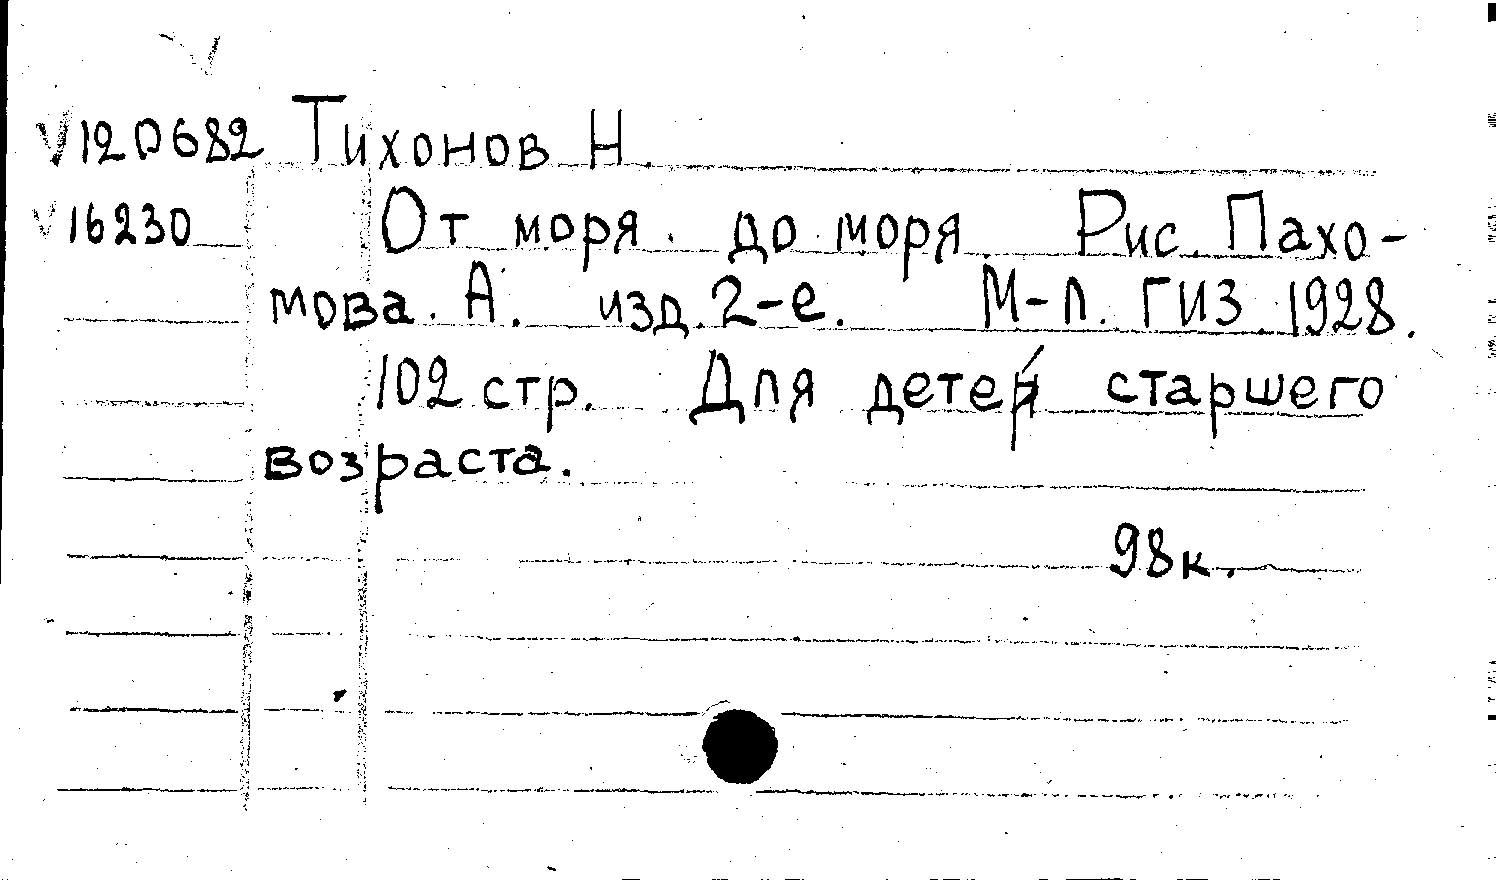 V120682 Тихонов Н.
V16230 От моря до моря. Рис. Пахо-
мова. А. изд. 2-е. М-Л. ГИЗ. 1928.
102 стр. Для детей старшего
возраста.
98к.